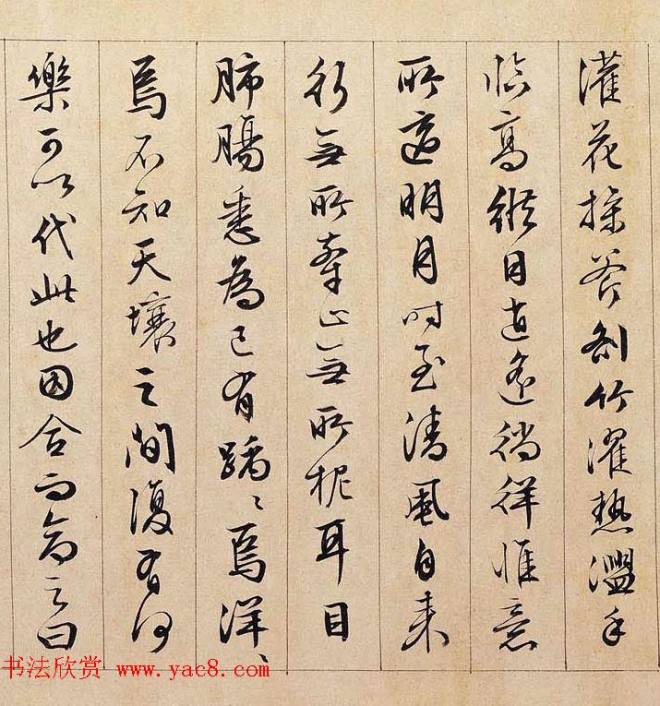 灌花操斧剖竹濯熱盥手
臨高縱目逍遥徜徉惟意
所適明月時至清風自来
行無所牽止無所柅耳目
肺腸悉為己有踽〻焉洋〻
焉不知天壤之間復有何
樂可以代此也因合而命之曰
书法欣赏 www.yac8.com